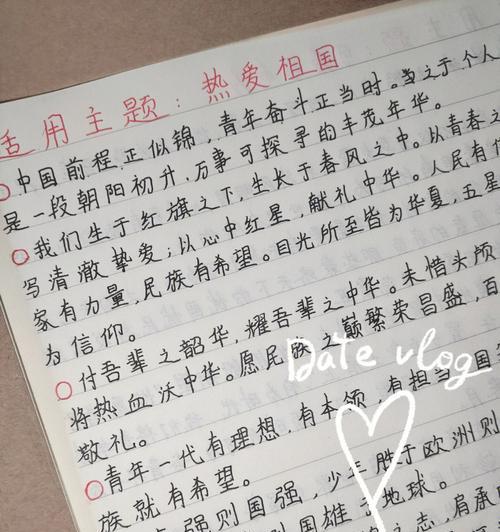 适用主题：热爱相国
中国前程正似锦，青年奋斗正当时。当之于个人
是一段朝阳初升，万事可探寻的丰茂年华。
我们生于红旗之下，生长于春风之中。以青春之
写清澈挚爱；以心中红星，献礼中华。人民有信
家有力量，民族有希望。目光所至皆为华夏，五星
为信仰。
付吾辈之韶华，耀吾辈之中华。未惜头颅
将热血沃中华。愿民族之巅繁荣昌盛，百
敬礼。
青年一代有理想，有本领，有担当，国
族就有希望。
强则国强，少年胜于欧洲则
则国雄于地球。
志，肩承
Date vlog